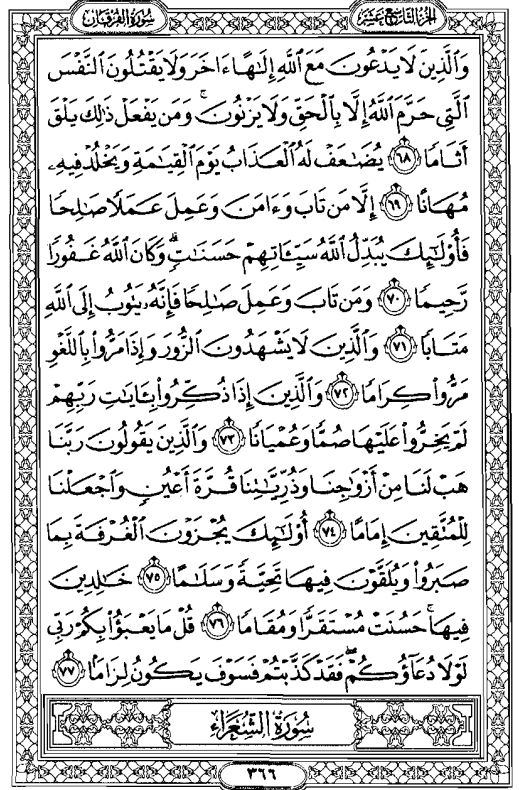 الجزء التاسع عشر
سورة الفرقان
وَالَّذِينَ لَا يَدْعُونَ مَعَ اللَّهِ إِلَٰهًا ءَاخَرَ وَلَا يَقْتُلُونَ النَّفْسَ
الَّتِي حَرَّمَ اللَّهُ إِلَّا بِالْحَقِّ وَلَا يَزْنُونَ ۚ وَمَن يَفْعَلْ ذَٰلِكَ يَلْقَ
أَثَامًا ٦٨ يُضَٰعَفْ لَهُ الْعَذَابُ يَوْمَ الْقِيَٰمَةِ وَيَخْلُدْ فِيهِۦ
مُهَانًا ٦٩ إِلَّا مَن تَابَ وَءَامَنَ وَعَمِلَ عَمَلًا صَٰلِحًا
فَأُو۟لَٰٓئِكَ يُبَدِّلُ اللَّهُ سَيِّـَٔاتِهِمْ حَسَنَٰتٍ ۗ وَكَانَ اللَّهُ غَفُورًا
رَّحِيمًا ٧٠ وَمَن تَابَ وَعَمِلَ صَٰلِحًا فَإِنَّهُۥ يَتُوبُ إِلَى اللَّهِ
مَتَابًا ٧١ وَالَّذِينَ لَا يَشْهَدُونَ الزُّورَ وَإِذَا مَرُّوا۟ بِاللَّغْوِ
مَرُّوا۟ كِرَامًا ٧٢ وَالَّذِينَ إِذَا ذُكِّرُوا۟ بِـَٔايَٰتِ رَبِّهِمْ
لَمْ يَخِرُّوا۟ عَلَيْهَا صُمًّا وَعُمْيَانًا ٧٣ وَالَّذِينَ يَقُولُونَ رَبَّنَا
هَبْ لَنَا مِنْ أَزْوَٰجِنَا وَذُرِّيَّٰتِنَا قُرَّةَ أَعْيُنٍ وَاجْعَلْنَا
لِلْمُتَّقِينَ إِمَامًا ٧٤ أُو۟لَٰٓئِكَ يُجْزَوْنَ الْغُرْفَةَ بِمَا
صَبَرُوا۟ وَيُلَقَّوْنَ فِيهَا تَحِيَّةً وَسَلَٰمًا ٧٥ خَٰلِدِينَ
فِيهَا ۚ حَسُنَتْ مُسْتَقَرًّا وَمُقَامًا ٧٦ قُلْ مَا يَعْبَؤُا۟ بِكُمْ رَبِّي
لَوْلَا دُعَآؤُكُمْ ۖ فَقَدْ كَذَّبْتُمْ فَسَوْفَ يَكُونُ لِزَامًا ٧٧
سُورَةُ الشُّعَرَاءِ
٣٦٦